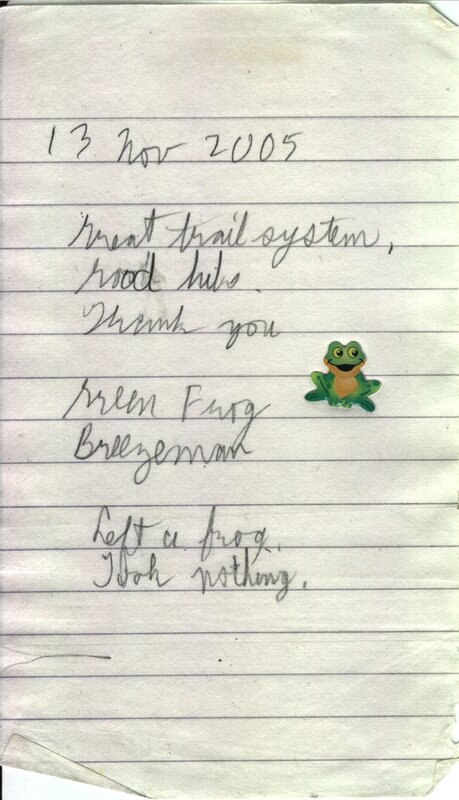 13 Nov 2005
Great trail system,
Good hike.
Thank you
Green Frog
Breezeman
Left a frog.
Took nothing.